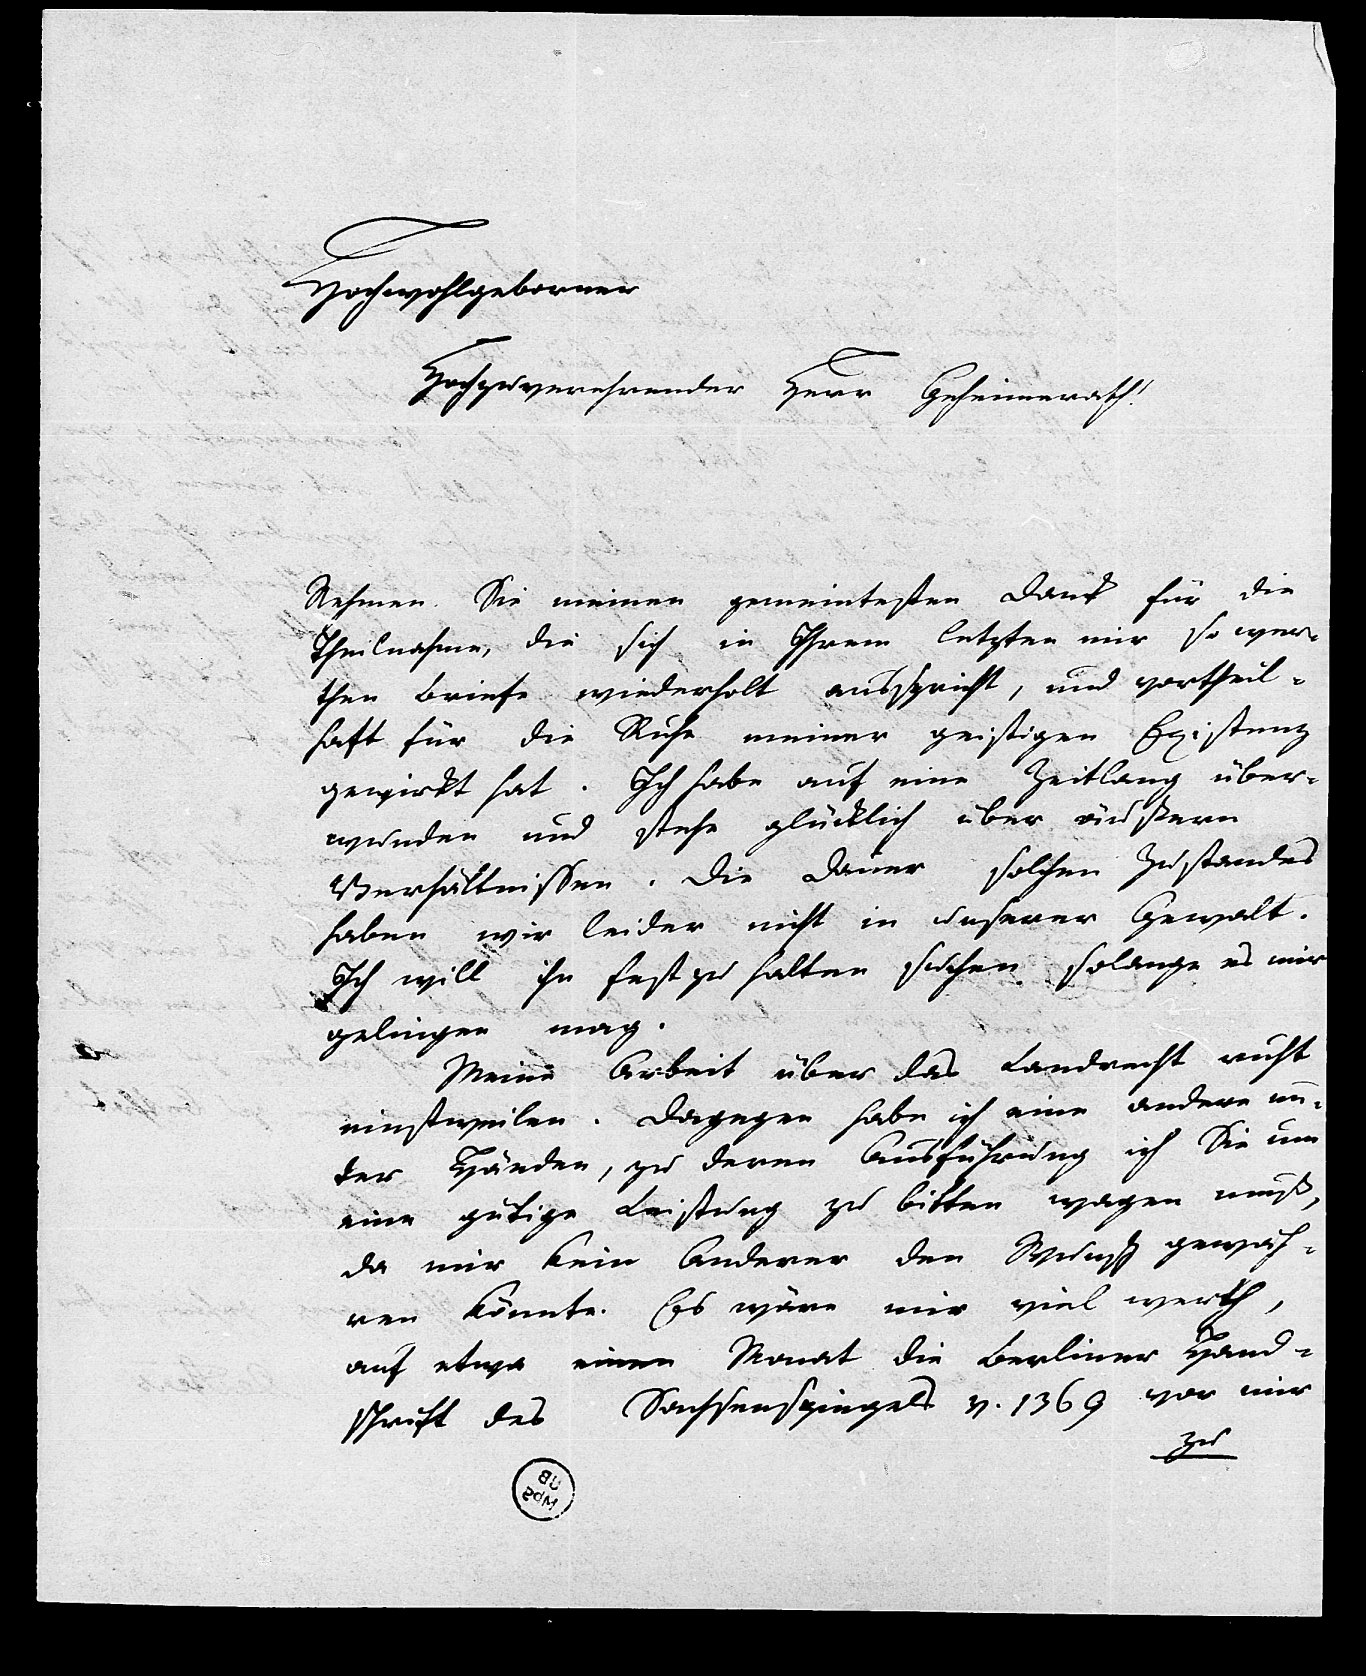 Hochwohlgeborner
Hochzuverehrender Herr Geheimerath!
Nehmen Sie meinen gemeintesten Dank für die
Theilnahme, die sich in Ihrem letzten mir so wer-
then Briefe wiederholt ausspricht, und vortheil-
haft für die Ruhe meiner geistigen Existenz
gewirkt hat. Ich habe auf eine Zeitlang über-
wunden und stehe glücklich über äußern
Verhältnissen. Die Dauer solchen Zustandes
haben wir leider nicht in unserer Gewalt.
Ich will ihn fest zu halten suchen solange es mir
gelingen mag.
Meine Arbeit über das Landrecht ruht
einstweilen. Dagegen habe ich eine andere un-
ter Händen, zu deren Ausführung ich Sie um
eine gütige Leistung zu bitten wagen muß,
da mir kein Anderer den Wunsch gewäh-
ren könnte. Es wäre mir viel werth,
auf etwa einen Monat die Berliner Hand-
schrift des Sachsenspiegels v. 1369 vor mir
zu